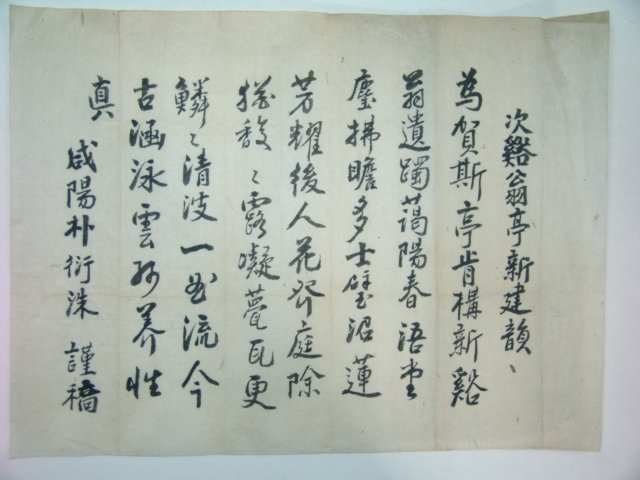 次谿翁亭新建韻
為賀斯亭肯構新谿
翁遺躅藹陽春浯
塵拂瞻多士璧沼蓮
芳耀後人花發庭除
猶馥〻露凝甍瓦更
鱗〻清波一曲流今
古涵泳雲孫養性
真
咸陽朴衍洙 謹稿